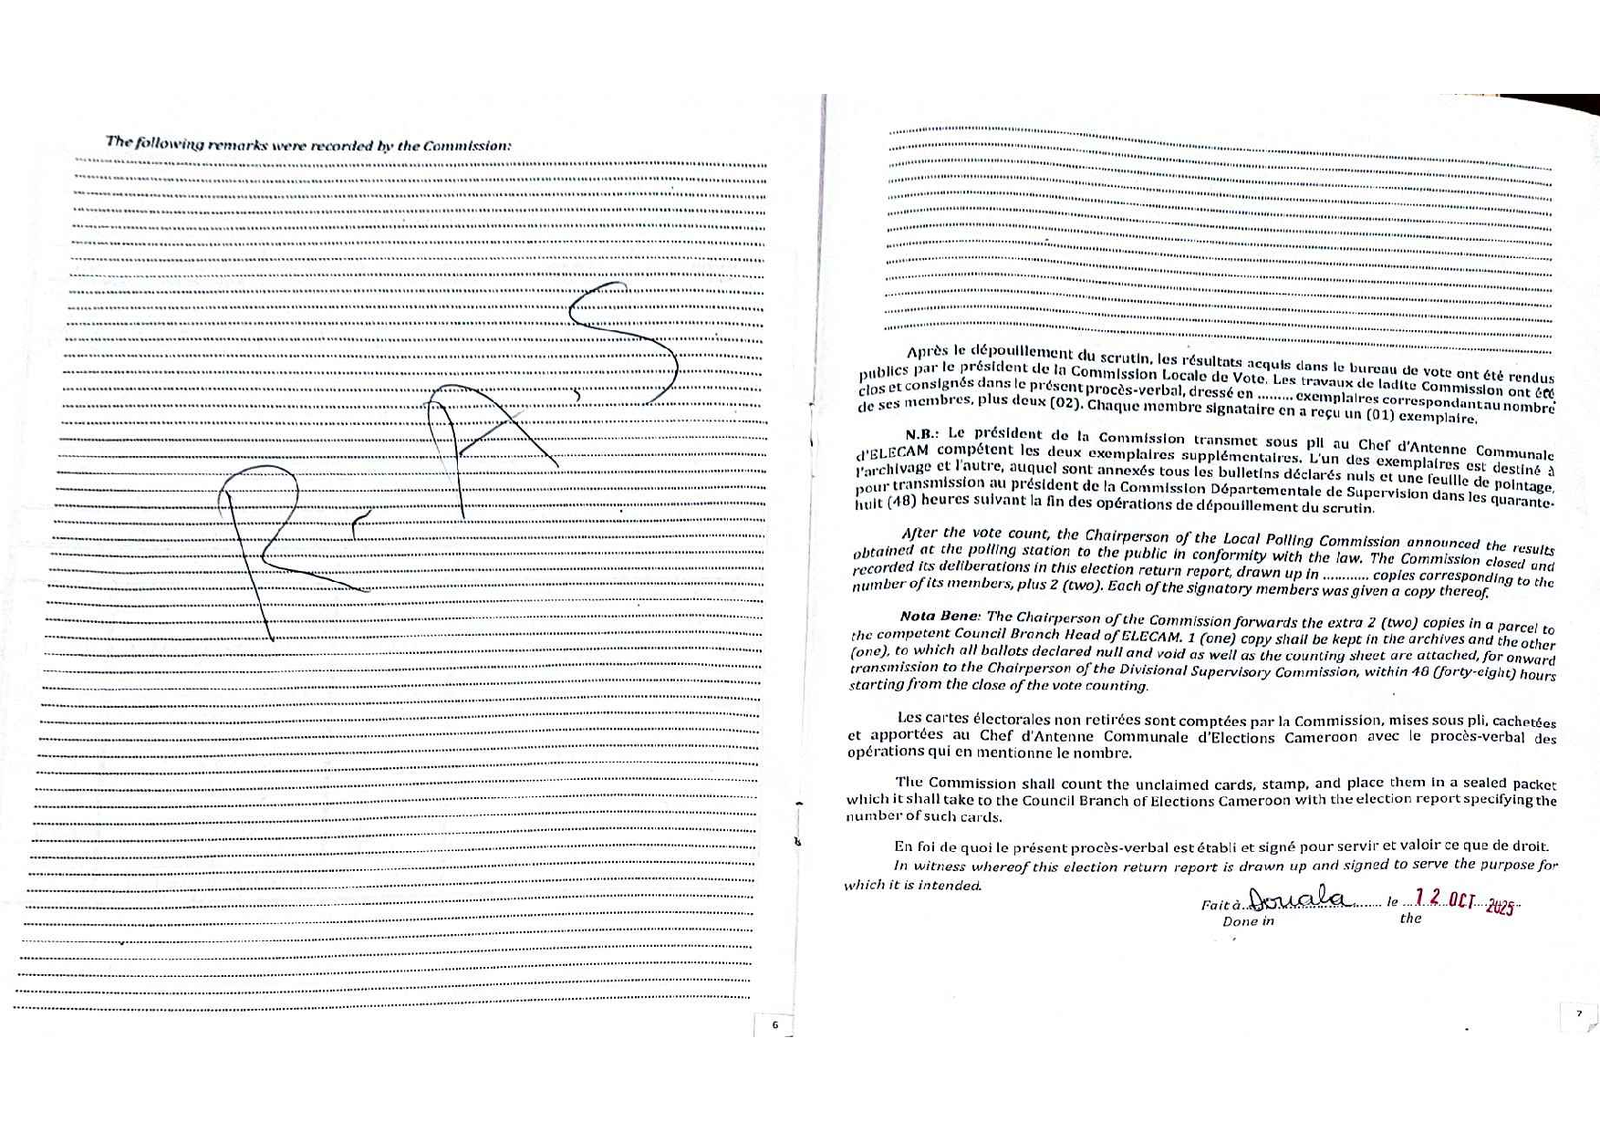 The following remarks were recorded by the Commission:
R A S
6
Après le dépouillement du scrutin, les résultats acquis dans le bureau de vote ont été rendus
publics par le président de la Commission Locale de Vote. Les travaux de ladite Commission ont été
clos et consignés dans le présent procès-verbal, dressé en ......... exemplaires correspondant au nombre
de ses membres, plus deux (02). Chaque membre signataire en a reçu un (01) exemplaire.
N.B.: Le président de la Commission transmet sous pli au Chef d'Antenne Communale
d'ELECAM compétent les deux exemplaires supplémentaires. L'un des exemplaires est destiné à
l'archivage et l'autre, auquel sont annexés tous les bulletins déclarés nuls et une feuille de pointage,
pour transmission au président de la Commission Départementale de Supervision dans les quarante-
huit (48) heures suivant la fin des opérations de dépouillement du scrutin.
After the vote count, the Chairperson of the Local Polling Commission announced the results
obtained at the polling station to the public in conformity with the law. The Commission closed and
recorded its deliberations in this election return report, drawn up in ............ copies corresponding to the
number of its members, plus 2 (two). Each of the signatory members was given a copy thereof.
Nota Bene: The Chairperson of the Commission forwards the extra 2 (two) copies in a parcel to
the competent Council Branch Head of ELECAM. 1 (one) copy shall be kept in the archives and the other
(one), to which all ballots declared null and void as well as the counting sheet are attached, for onward
transmission to the Chairperson of the Divisional Supervisory Commission, within 48 (forty-eight) hours
starting from the close of the vote counting.
Les cartes électorales non retirées sont comptées par la Commission, mises sous pli, cachetées
et apportées au Chef d'Antenne Communale d'Elections Cameroon avec le procès-verbal des
opérations qui en mentionne le nombre.
The Commission shall count the unclaimed cards, stamp, and place them in a sealed packet
which it shall take to the Council Branch of Elections Cameroon with the election report specifying the
number of such cards.
En foi de quoi le présent procès-verbal est établi et signé pour servir et valoir ce que de droit.
In witness whereof this election return report is drawn up and signed to serve the purpose for
which it is intended.
Fait à Douala le 12 OCT 2025
Done in the
7